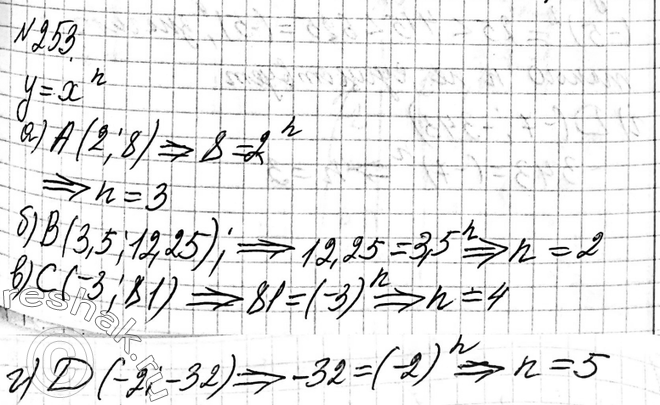 №253.
y = x^n
а) A(2; 8) ⇒ 8 = 2^n
⇒ n = 3
б) B(3,5; 12,25); ⇒ 12,25 = 3,5^n ⇒ n = 2
в) C(-3; 81) ⇒ 81 = (-3)^n ⇒ n = 4
г) D(-2; -32) ⇒ -32 = (-2)^n ⇒ n = 5